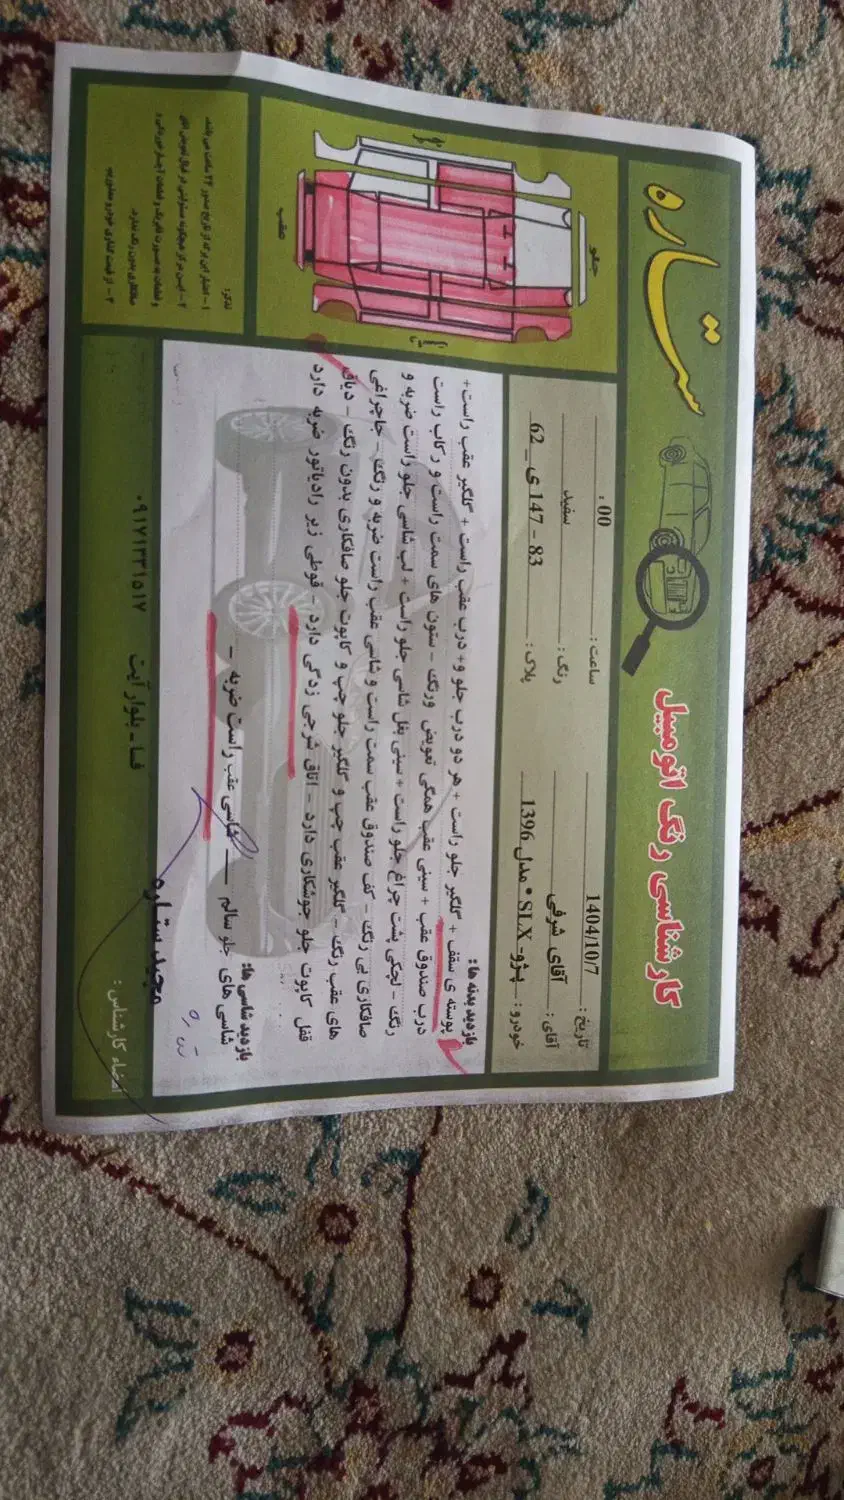 ستاره
کارشناسی رنگ اتومبیل
تاریخ : 1404/10/7
ساعت : 00 :
آقای : آقای شرفی
رنگ : سفید
خودرو : پژو- SLX * مدل 1396
پلاک : 83 – 147 ی _ 62
جلو
عقب
بازدید بدنه ها :
پوسته ی سقف + گلگیر جلو راست + هر دو درب جلو و+ درب عقب راست + گلگیر عقب راست+
درب صندوق عقب + سینی عقب همگی تعویض ورنگ – ستون های سمت راست و رکاب راست
رنگ – لچکی پشت چراغ جلو راست + سینی بغل شاسی جلو راست + لب شاسی جلو راست ضربه و
صافکاری بی رنگ – کف صندوق عقب سمت راست و شاسی عقب راست ضربه و رنگ – جاچراغی
های عقب رنگ – گلگیر عقب چپ و گلگیر جلو چپ و کاپوت جلو صافکاری بدون رنگ – دیاق
قفل کاپوت جلو جوشکاری دارد – اتاق شرجی زدگی دارد – قوطی زیر رادیاتور ضربه دارد
بازدید شاسی ها:
شاسی های جلو سالم — شاسی عقب راست ضربه –
مجید ستاره
امضاء کارشناس :
فسا - بلوار آیت
۰۹۱۷۱۳۳۱۵۱۷
تذکر :
۱ – اعتبار این برگه از تاریخ صدور ۲۴ ساعت می باشد.
۲ – ایـن مرکز هیچگونه مسئولیتی در قبال تعویض اتاق
و قطعات به صـورت فابریک و قطعات آچـار خوردگی و
صافکاری بدون رنگ ندارد.
۳ – از قیمت گذاری خودرو معذوریم.